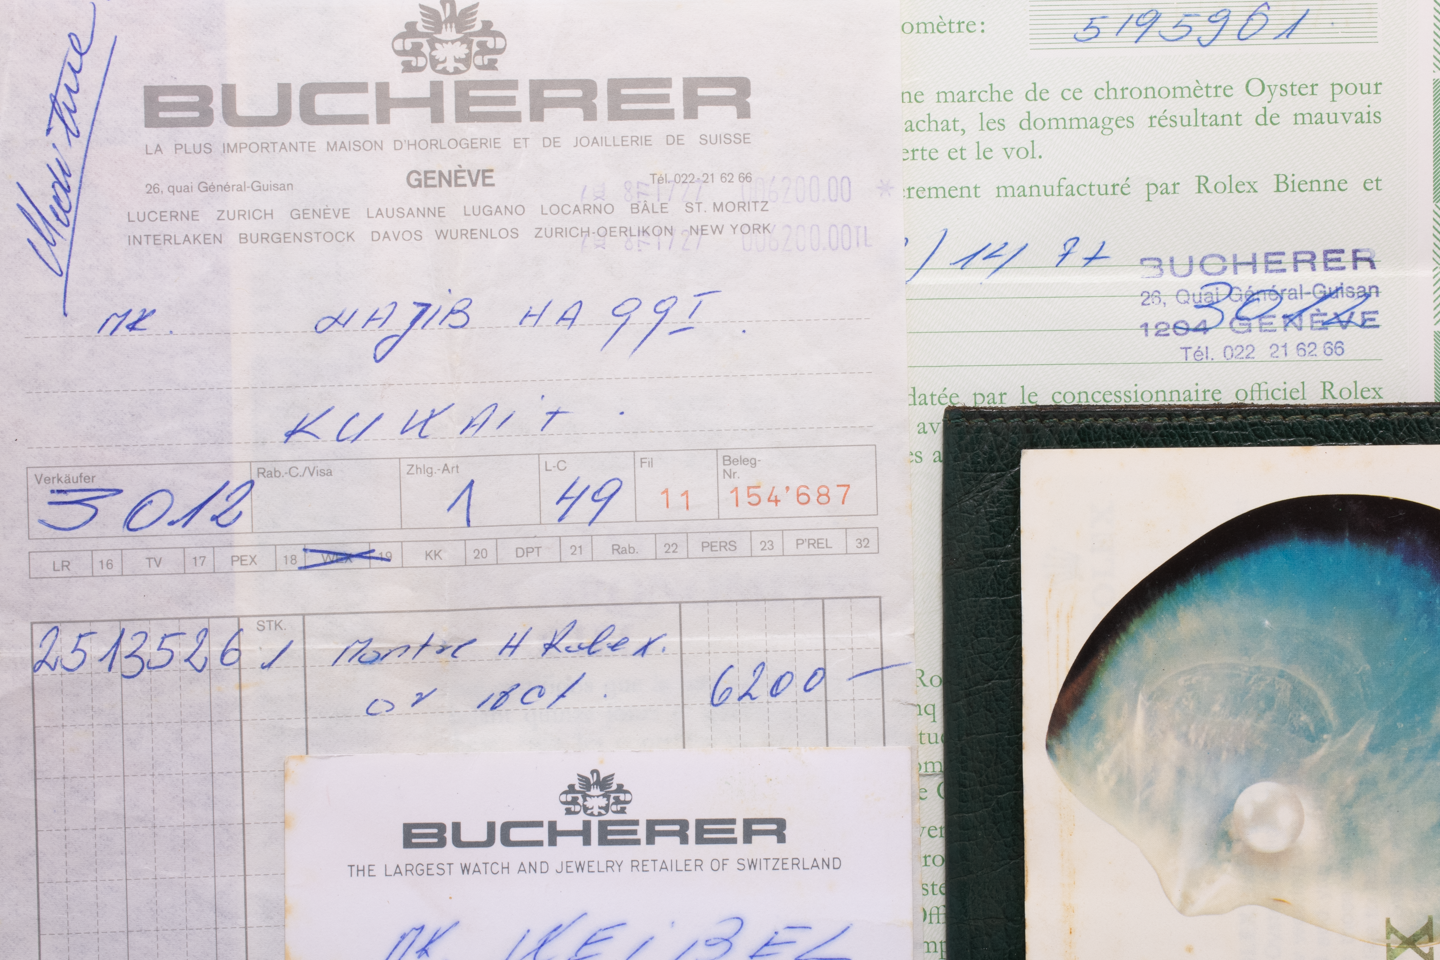 BUCHERER
LA PLUS IMPORTANTE MAISON D'HORLOGERIE ET DE JOAILLERIE DE SUISSE
26, quai Général-Guisan GENÈVE Tél. 022-21 62 66
006200.00 *
LUCERNE ZURICH GENÈVE LAUSANNE LUGANO LOCARNO BÂLE ST. MORITZ
INTERLAKEN BURGENSTOCK DAVOS WURENLOS ZÜRICH-OERLIKON NEW YORK
006200.00TL
MR. NAJIB HAGGI.
KUWAIT.
Verkäufer Rab.-C./Visa Zhlg.-Art L-C Fil Beleg-Nr.
3012 1 49 11 154'687
LR 16 TV 17 PEX 18 19 KK 20 DPT 21 Rab. 22 PERS 23 P'REL 32
STK.
2513526 1 Montre H Rolex.
or 18ct. 6200 —
BUCHERER
THE LARGEST WATCH AND JEWELRY RETAILER OF SWITZERLAND
MR. WEIBEL
omètre: 5195961
ne marche de ce chronomètre Oyster pour
achat, les dommages résultant de mauvais
erte et le vol.
rement manufacturé par Rolex Bienne et
/ 14/ 77
BUCHERER
26, Quai Général-Guisan
3012
1204 GENÈVE
Tél. 022 21 62 66
datée par le concessionnaire officiel Rolex
av
es a
Ro
nq
tu
om
e C
ver
ro
ste
Off
mp